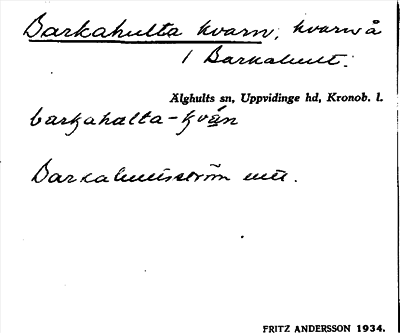 Barkahulta kvarn, kvarn å
/ Barkahult.
Älghults sn, Uppvidinge hd, Kronob. l.
barkahalta-kván
Barkahultsström
FRITZ ANDERSSON 1934.